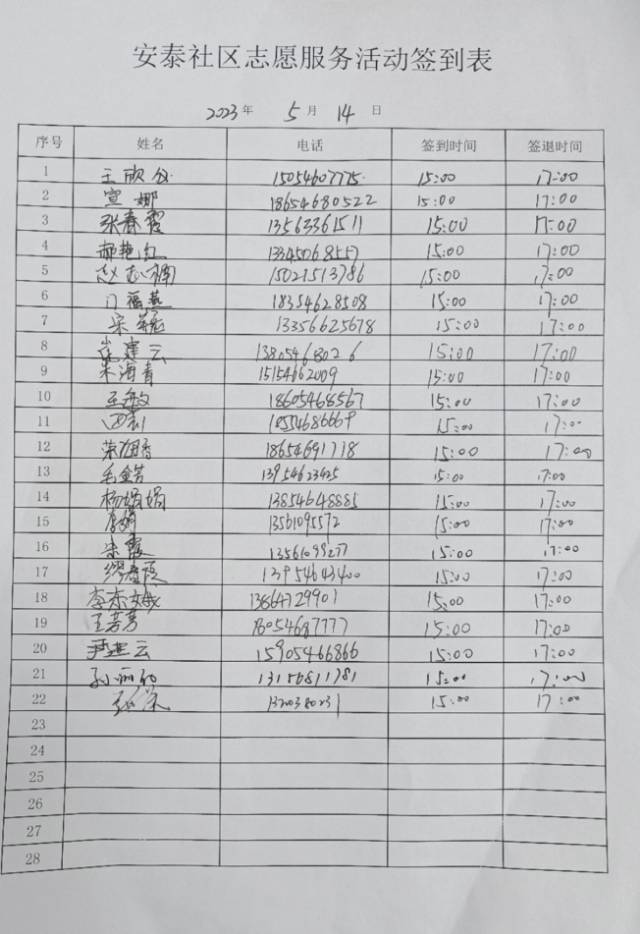 安泰社区志愿服务活动签到表
2023年 5月 14日
序号 姓名 电话 签到时间 签退时间
1 王欣 15054607775 15:00 17:00
2 宣娜 18654680522 15:00 17:00
3 张春霞 13563361511 15:00 17:00
4 郝艳红 13345068557 15:00 17:00
5 赵志楠 15021513786 15:00 17:00
6 门福燕 18354628508 15:00 17:00
7 宋 13356625678 15:00 17:00
8 建云 13805468026 15:00 17:00
9 朱海青 15154662009 15:00 17:00
10 王海文 18605468567 15:00 17:00
11 15:00 17:00
12 荣海香 18654691718 15:00 17:00
13 毛金芳 15:00 17:00
14 杨娟娟 13854648885 15:00 17:00
15 13561095572 15:00 17:00
16 宋霞 13561099277 15:00 17:00
17 13954643400 15:00 17:00
18 李杰娥 13864729901 15:00 17:00
19 王芳芳 15:00 17:00
20 尹建云 15905466866 15:00 17:00
21 孙丽 13156811781 15:00 17:00
22 15:00 17:00
23
24
25
26
27
28